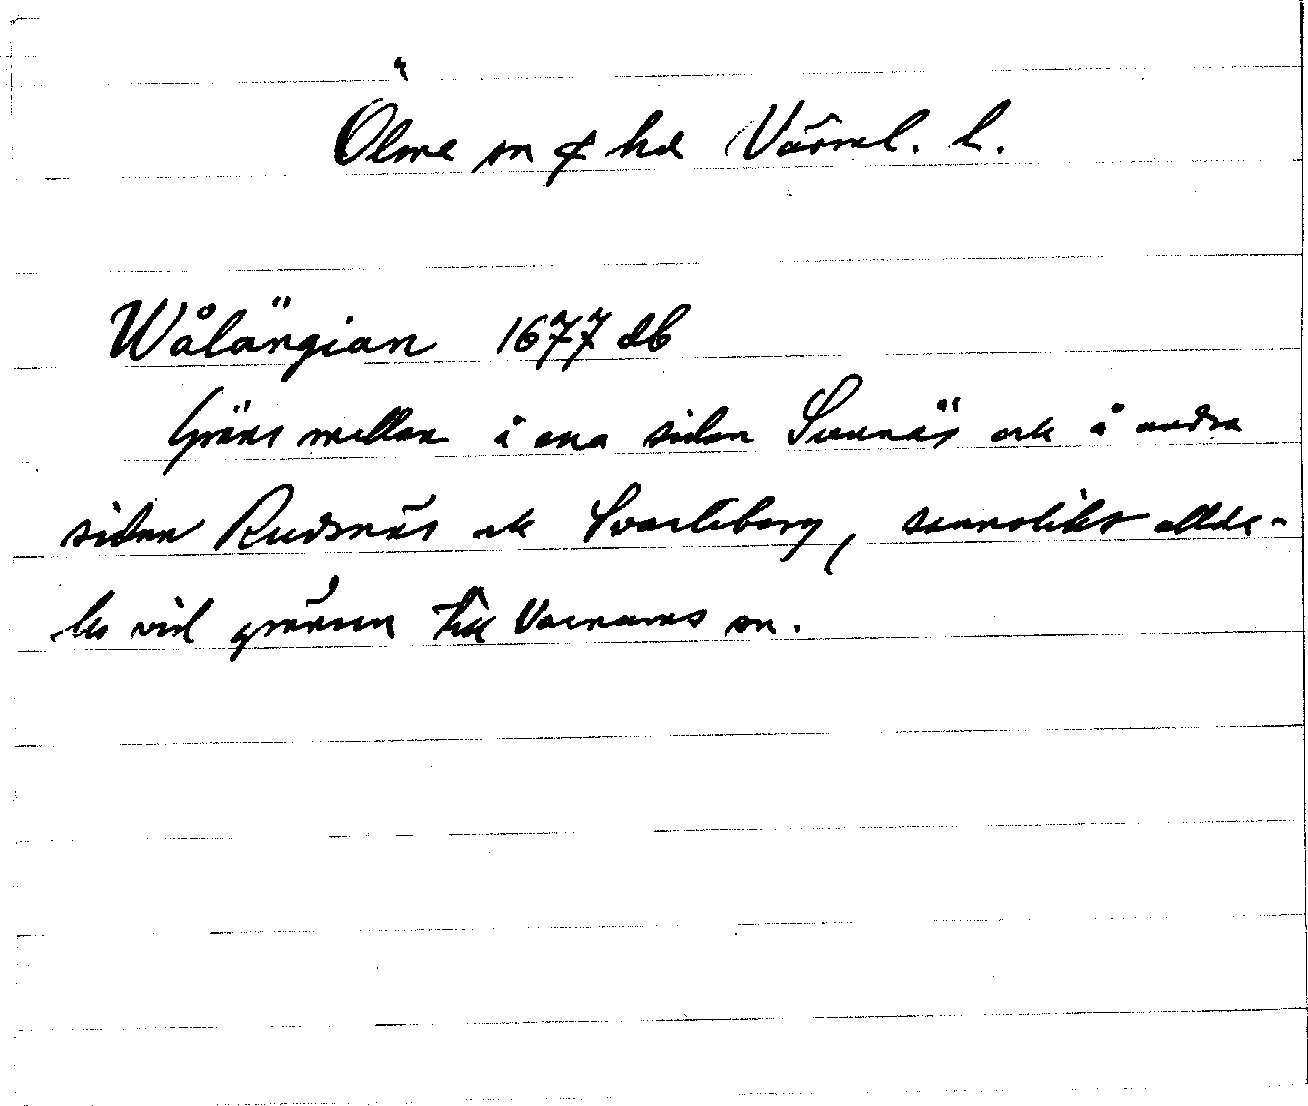 Ölme sn & hd Värml. l.
Wålängian 1677 db
Gräns mellan å ena sidan Svenäs ock å andra
sidan Rudsnäs ock Svarteborg, sannolikt allde-
les vid gränsen till Varnums sn.